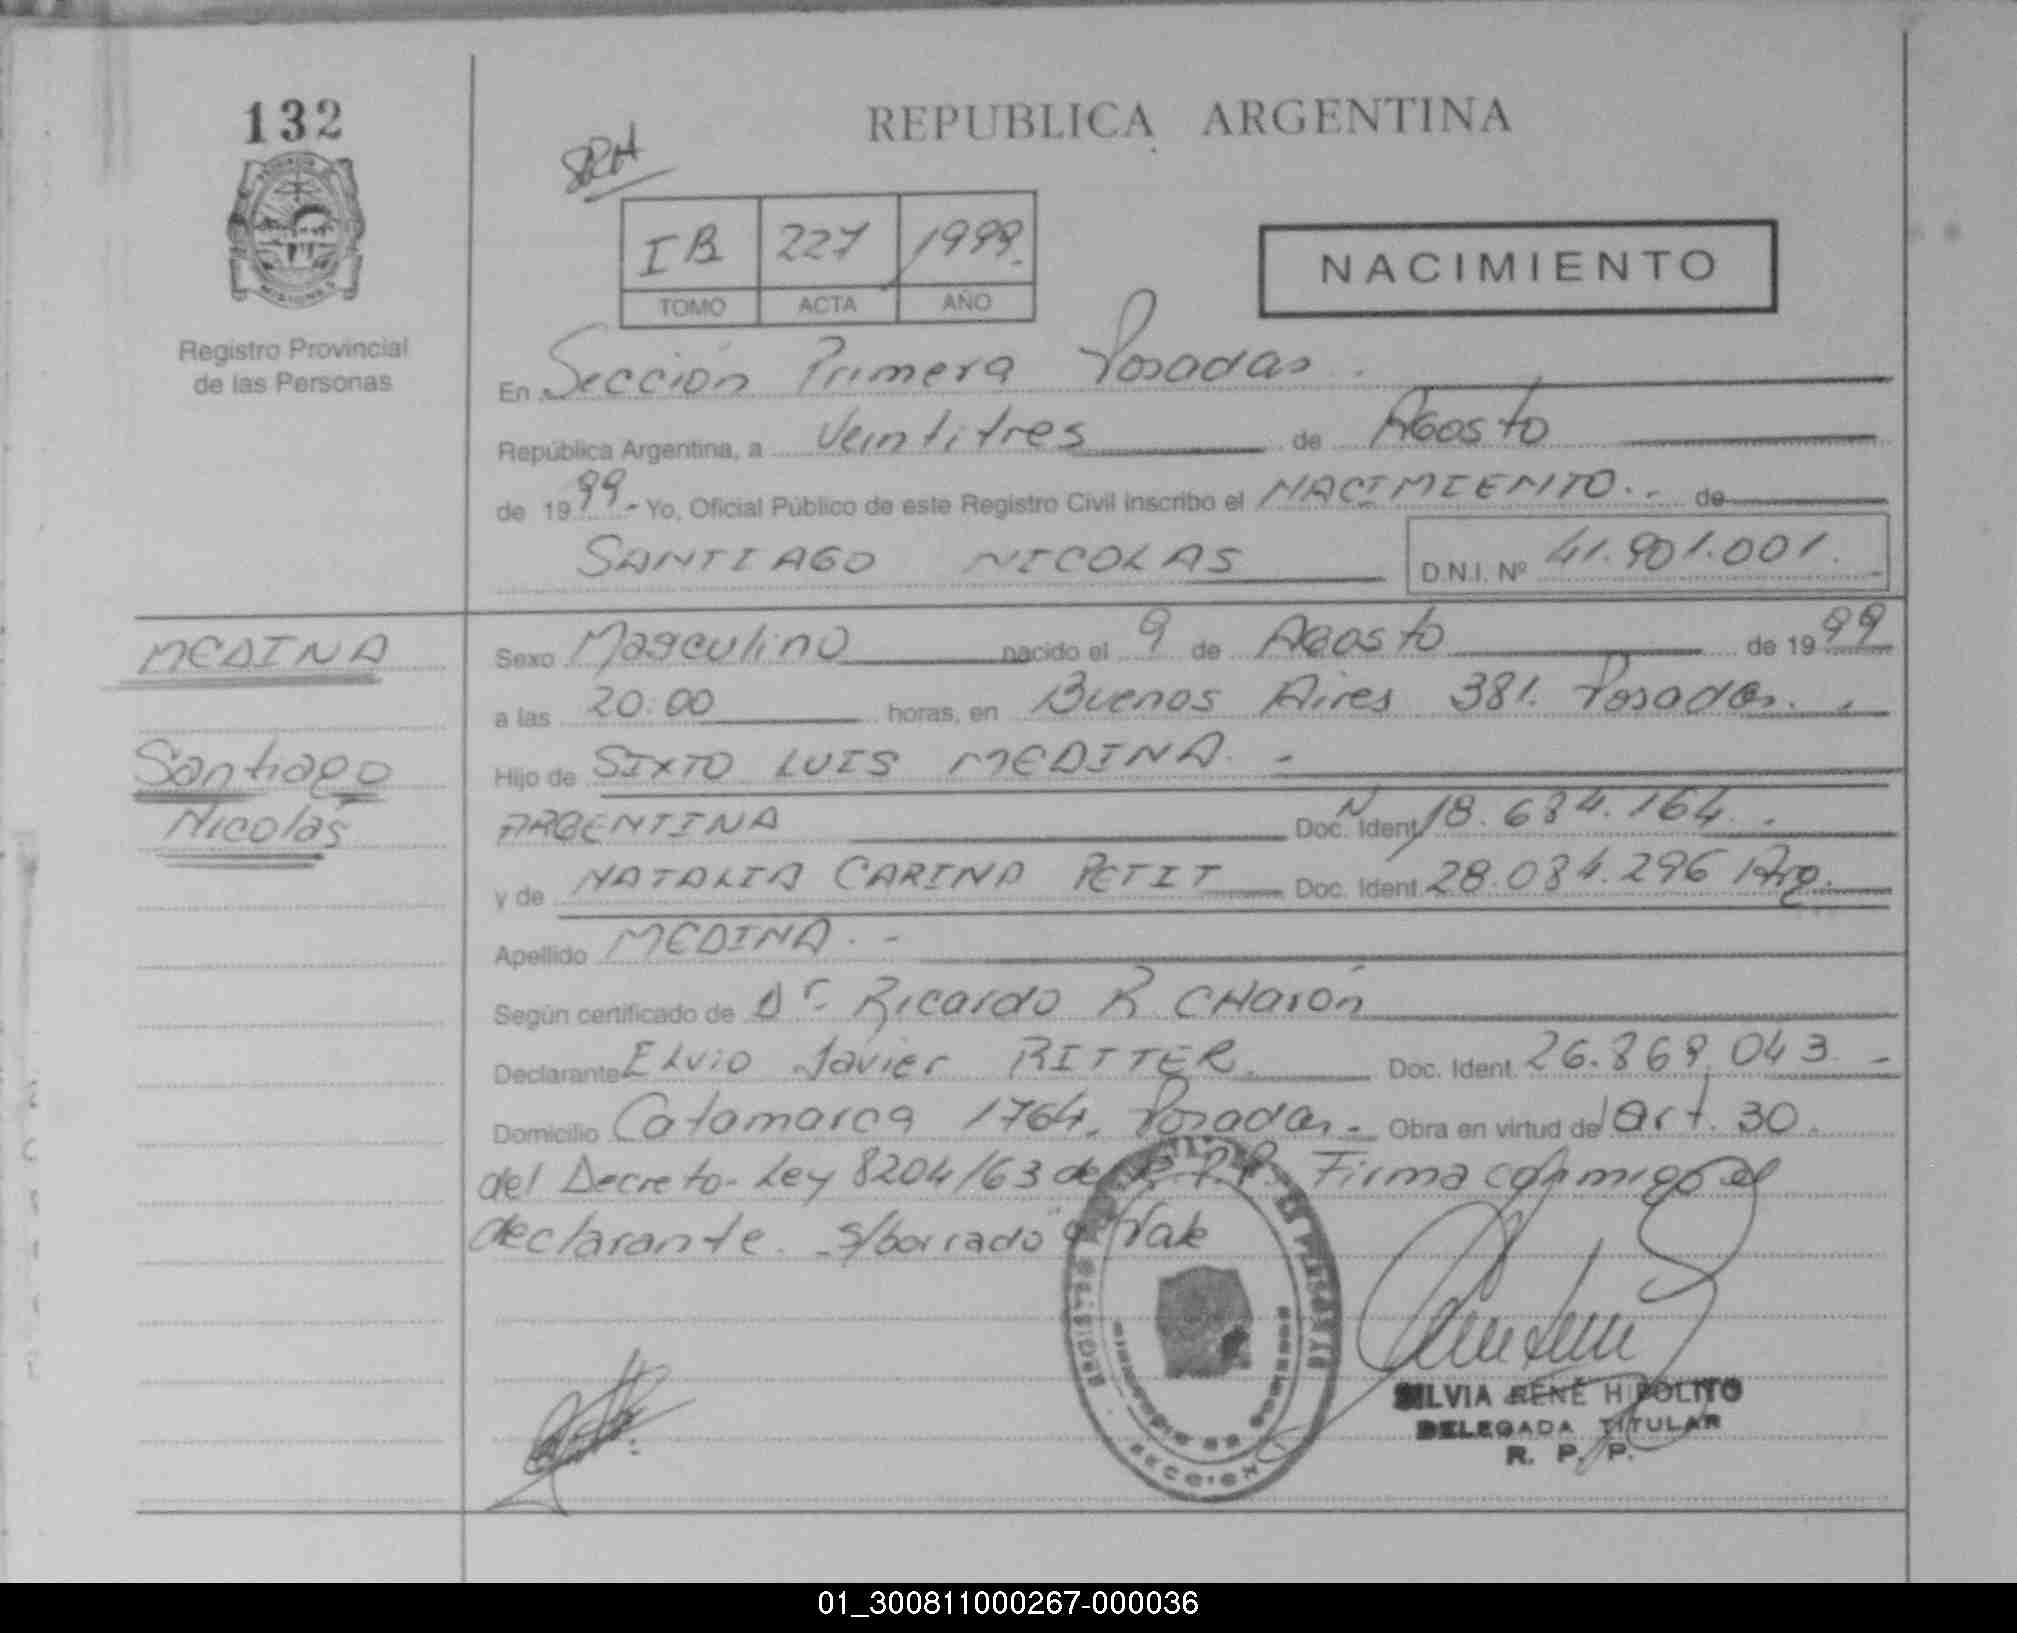 132
REPUBLICA ARGENTINA
I B 227 1999.
TOMO ACTA AÑO
NACIMIENTO
Registro Provincial
de las Personas
En Sección Primera Posadas.
República Argentina, a Veintitres de Agosto
de 1999.- Yo, Oficial Público de este Registro Civil inscribo el NACIMIENTO.- de
SANTIAGO NICOLAS D.N.I. Nº 41.901.001.
MEDINA
Santiago
Nicolás
Sexo Masculino nacido el 9 de Agosto de 1999
a las 20:00 horas, en Buenos Aires 381. Posadas.
Hijo de SIXTO LUIS MEDINA. -
ARGENTINA Doc. Ident. 18.684.164.
y de NATALIA CARINA PETIT Doc. Ident. 28.084.296 Arg.
Apellido MEDINA. -
Según certificado de Dr. Ricardo R. CHarón
Declarante ELvio Javier RITTER. Doc. Ident. 26.869.043. -
Domicilio Catamarca 1764. Posadas.- Obra en virtud del art. 30.
del Decreto-Ley 8204/63 del R.P.P. Firma conmigo el
declarante. s/borrado Vale
SILVIA RENÉ HIPOLITO
DELEGADA TITULAR
R. P. P.
01_300811000267-000036